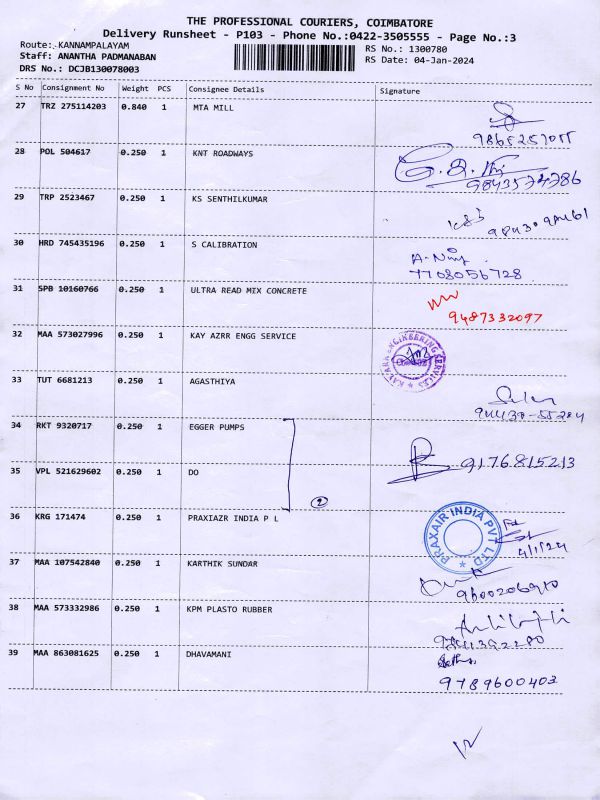 THE PROFESSIONAL COURIERS, COIMBATORE
Delivery Runsheet - P103 - Phone No.:0422-3505555 - Page No.:3
Route: KANNAMPALAYAM
Staff: ANANTHA PADMANABAN
DRS No.: DCJB130078003
RS No.: 1300780
RS Date: 04-Jan-2024
S No Consignment No Weight PCS Consignee Details Signature
27 TRZ 275114203 0.840 1 MTA MILL
28 POL 504617 0.250 1 KNT ROADWAYS
9843574786
29 TRP 2523467 0.250 1 KS SENTHILKUMAR
30 HRD 745435196 0.250 1 S CALIBRATION
7708056728
31 SPB 10160766 0.250 1 ULTRA READ MIX CONCRETE
9487332097
32 MAA 573027996 0.250 1 KAY AZRR ENGG SERVICE
33 TUT 6681213 0.250 1 AGASTHIYA
34 RKT 9320717 0.250 1 EGGER PUMPS
35 VPL 521629602 0.250 1 DO
2
9176815213
36 KRG 171474 0.250 1 PRAXIAZR INDIA P L
PRAXAIR INDIA PVT LTD
4/1/24
37 MAA 107542840 0.250 1 KARTHIK SUNDAR
38 MAA 573332986 0.250 1 KPM PLASTO RUBBER
39 MAA 863081625 0.250 1 DHAVAMANI
9789600403